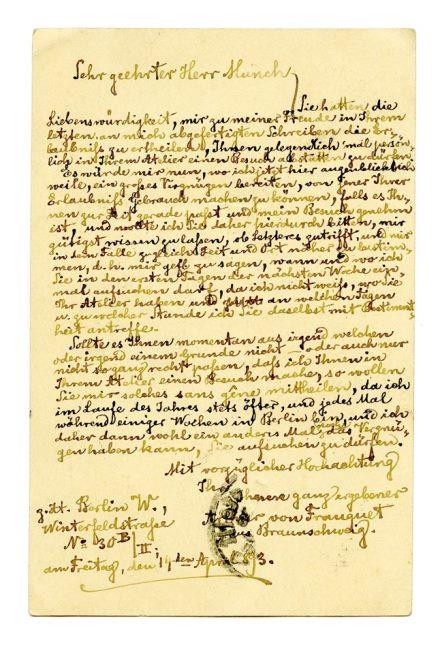 Sehr geehrter Herr Munch,
Sie hatten die
Liebenswürdigkeit, mir zu meiner Freude in Ihrem
letzten an mich abgefertigten Schreiben die Er-
laubniß zu ertheilen, Ihnen gelegentlich 'mal persön-
lich in Ihrem Atelier einen Besuch abstatten zu dürfen.
Es würde mir nun, wo ich jetzt hier augenblicklich
weile, ein großes Vergnügen bereiten, von jener Ihrer
Erlaubniß Gebrauch machen zu können, falls es Ih-
nen zur Zeit gerade paßt und mein Besuch genehm
ist, und möchte ich Sie daher hierdurch bitten, mir
gütigst wissen zu laßen, ob Letzteres zutrifft, und mir
in dem Falle zugleich Zeit und Ort näher zu bestim-
men, d. h. mir gefl. zu sagen, wann und wo ich
Sie in den ersten Tagen der nächsten Woche ein-
mal aufsuchen darf, da ich nicht weiß, wo Sie
Ihr Atelier haben und an welchen Tagen
u. zu welcher Stunde ich Sie daselbst mit Bestimmt-
heit antreffe.
Sollte es Ihnen momentan aus irgend welchen
oder irgend einem Grunde nicht oder auch nur
nicht so ganz recht paßen, daß ich Ihnen in
Ihrem Atelier einen Besuch mache, so wollen
Sie mir solches sans gêne mittheilen, da ich
im Laufe des Jahres stets öfter, und jedes Mal
während einiger Wochen in Berlin bin, und ich
daher dann wohl ein anders Mal das Vergnü-
gen haben kann, Sie aufsuchen zu dürfen.
Mit vorzüglicher Hochachtung
Ihr ganz ergebener
von Franquet
aus Braunschweig.
z. Zt. Berlin W.,
Winterfeldstraße
No 30B/II;
am Freitag, den 14ten April 3.